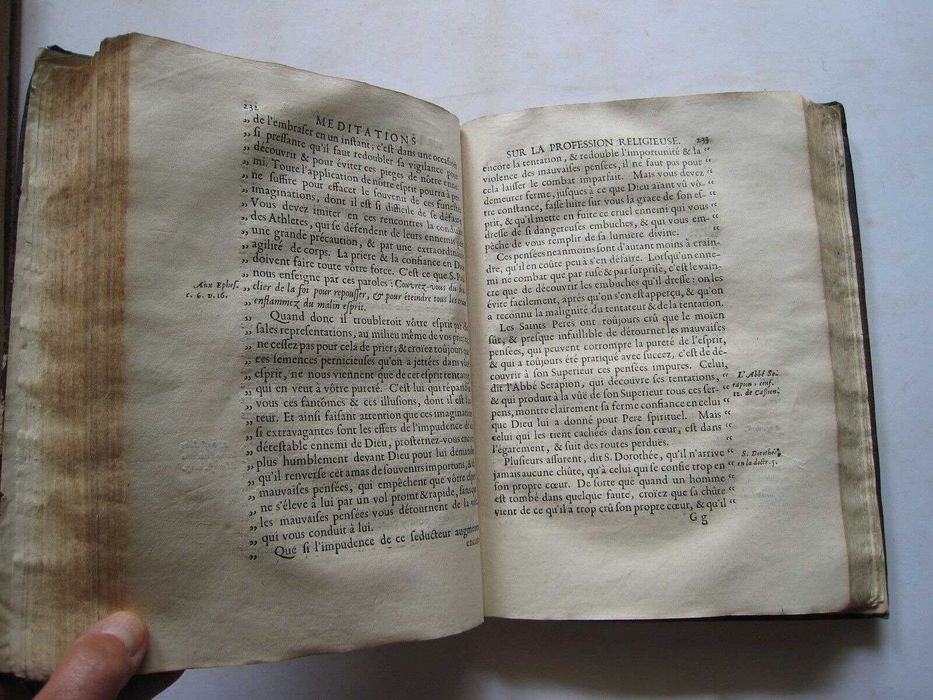 232 MEDITATIONS
„ de l'embraser en un instant; c'est dans une occasion
„ si pressante qu'il faut redoubler sa vigilance pour
„ découvrir & pour éviter ces pieges de nôtre enne-
„ mi. Toute l'application de nôtre esprit pourra à pei-
„ ne suffire pour effacer le souvenir de ces funestes
„ imaginations, dont il est si difficile de se défaire.
„ Vous devez imiter en ces rencontres la conduite
„ des Athletes, qui se défendent de leurs ennemis par
„ une grande précaution, & par une extraordinaire
„ agilité de corps. La priére & la confiance en Dieu
„ doivent faire toute vôtre force. C'est ce que S. Paul
„ nous enseigne par ces paroles: Couvrez-vous du bou-
Aux Ephes.
c. 6. v. 16.
„ clier de la foi pour repousser, & pour éteindre tous les traits
„ enflammez du malin esprit.
„ Quand donc il troubleroit vôtre esprit par de
„ sales representations, au milieu même de vos prieres,
„ ne cessez pas pour cela de prier; & croïez toûjours que
„ ces semences pernicieuses qu'on a jettées dans vôtre
„ esprit, ne nous viennent que de cet esprit tentateur
„ qui en veut à vôtre pureté. C'est lui qui répand en
„ vous ces fantômes & ces illusions, dont il est l'au-
„ teur. Et ainsi faisant attention que ces imaginations
„ si extravagantes sont les effets de l'impudence de ce
„ détestable ennemi de Dieu, prosternez-vous encore
„ plus humblement devant Dieu pour lui demander
„ qu'il renverse cet amas de souvenirs importuns, & de
„ mauvaises pensées, qui empêchent que vôtre esprit
„ ne s'éleve à lui par un vol promt & rapide, sans que
„ les mauvaises pensées vous détournent de la voie
„ qui vous conduit à lui.
„ Que si l'impudence de ce seducteur augmente
encore
SUR LA PROFESSION RELIGIEUSE. 233
encore la tentation, & redouble l'importunité & la “
violence des mauvaises pensées, il ne faut pas pour “
cela laisser le combat imparfait. Mais vous devez “
demeurer ferme, jusques à ce que Dieu aïant vû vô- “
tre constance, fasse luire sur vous la grace de son es- “
prit, & qu'il mette en fuite ce cruel ennemi qui vous “
dresse de si dangereuses embuches, & qui vous em- “
pêche de vous remplir de sa lumiere divine. “
Ces pensées neanmoins sont d'autant moins à crain-
dre, qu'il en coûte peu à s'en défaire. Lorsqu'un enne-
mi ne combat que par ruse & par surprise, c'est le vain-
cre que de découvrir les embuches qu'il dresse: on les
évite facilement, aprés qu'on s'en est apperçû, & qu'on
a reconnu la malignité du tentateur & de la tentation.
Les Saints Peres ont toûjours crû que le moïen
sûr, & presque infaillible de détourner les mauvaises
pensées, qui peuvent corrompre la pureté de l'esprit,
& qui a toujours été pratiqué avec succez, c'est de dé-
couvrir à son Superieur ces pensées impures. Celui,
dit l'Abbé Serapion, qui découvre ses tentations, “
L'Abbé Se-
rapion, conf.
12. de Cassien.
& qui produit à la vûe de son Superieur tous ces ser- “
pens, montre clairement sa ferme confiance en celui “
que Dieu lui a donné pour Pere spirituel. Mais “
celui qui les tient cachées dans son cœur, est dans “
l'égarement, & suit des routes perduës. “
Plusieurs assurent, dit S. Dorothée, qu'il n'arrive “
S. Dorothée,
en la doctr. 5.
jamais aucune chûte, qu'à celui qui se confie trop en “
son propre cœur. De sorte que quand un homme “
est tombé dans quelque faute, croïez que sa chûte “
vient de ce qu'il a trop crû son propre cœur, & qu'il “
G g